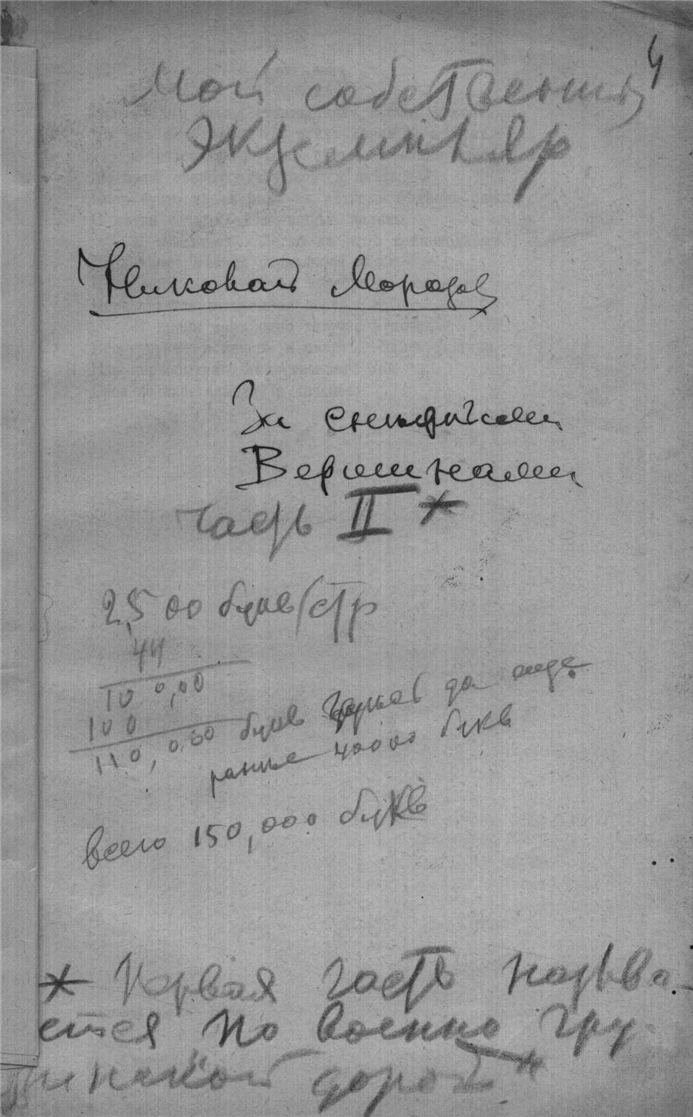 4
Мой собственный
экземпляр
Николай Морозов
За снежными
Вершинами
часть II *
2500 букв/стр
44
10 0,00
100
110,000 букв да еще
раньше 40000 букв
всего 150,000 букв
* Первая часть называ-
ется по военно гру-
зинской дороге *